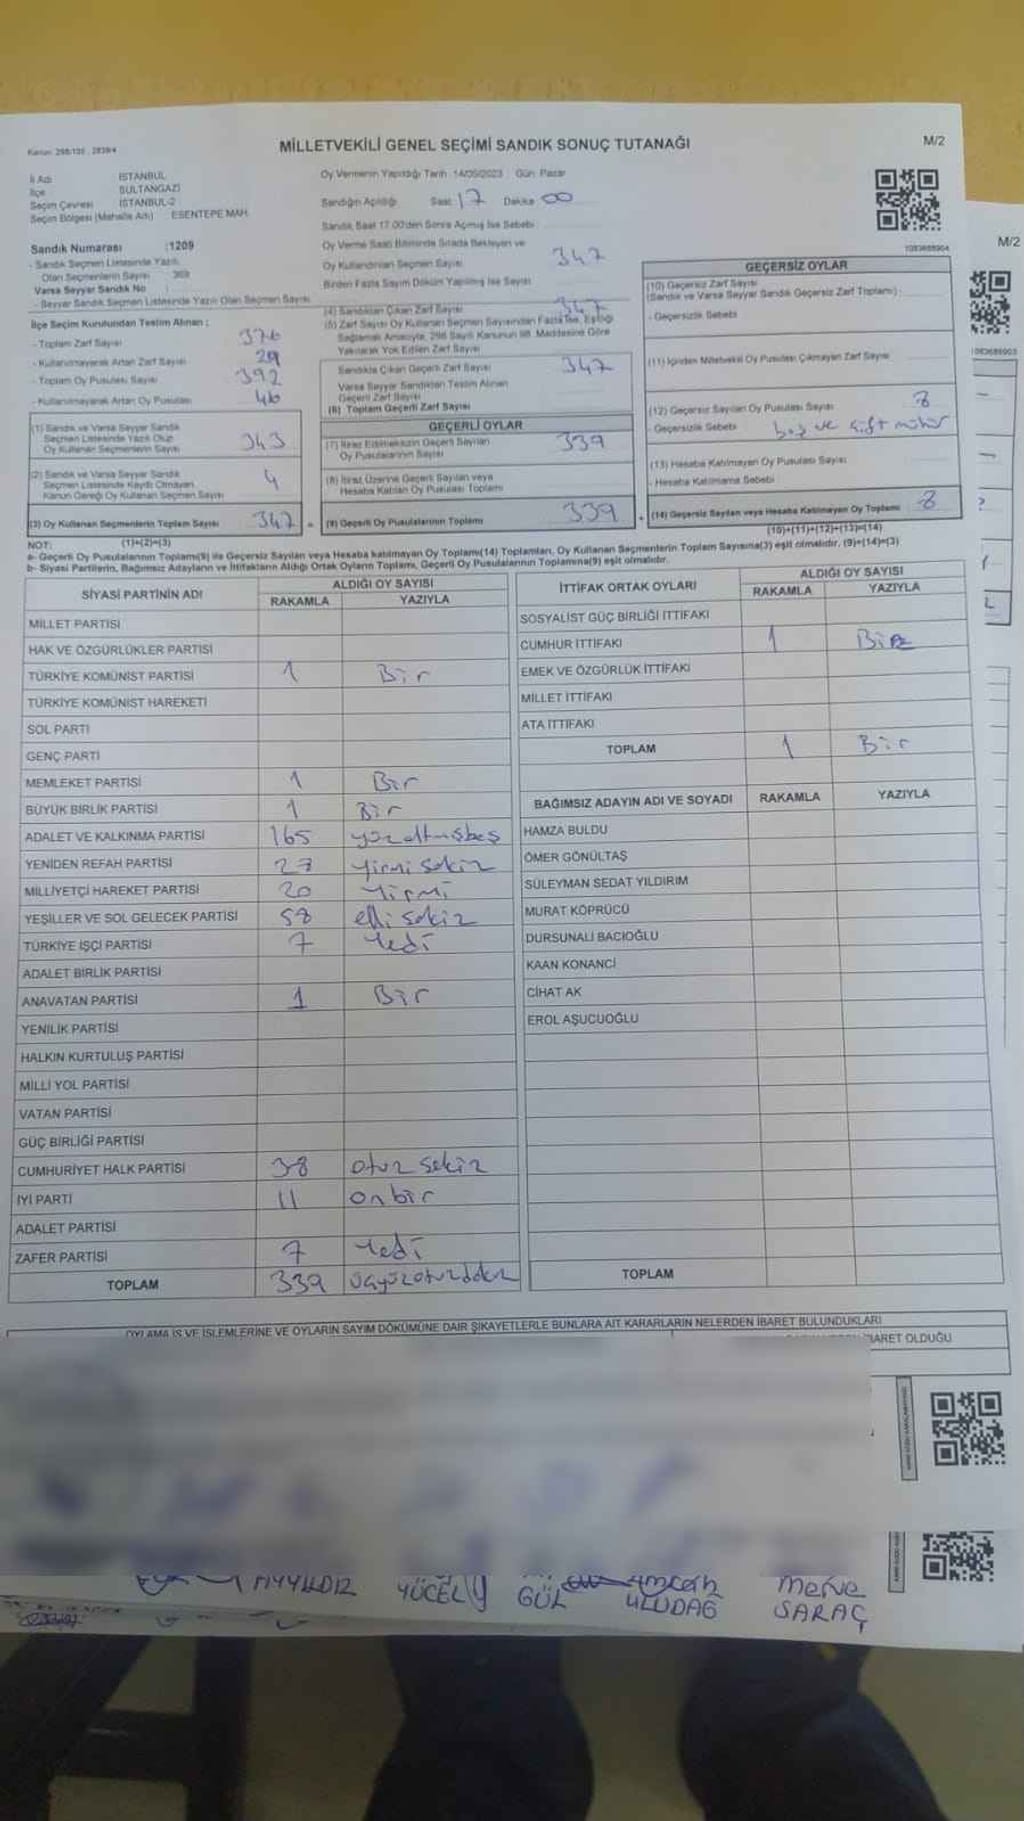 MİLLETVEKİLİ GENEL SEÇİMİ SANDIK SONUÇ TUTANAĞI
M/2
İl Adı İSTANBUL
İlçe SULTANGAZİ
Seçim Çevresi İSTANBUL-2
Seçim Bölgesi (Mahalle Adı) ESENTEPE MAH.
Oy Vermenin Yapıldığı Tarih 14/05/2023 Gün: Pazar
Sandığın Açıldığı Saat 17 Dakika 00
Sandık Saat 17.00'den Sonra Açılmış İse Sebebi
Sandık Numarası :1209
- Sandık Seçmen Listesinde Yazılı
Olan Seçmenlerin Sayısı
Varsa Seyyar Sandık No
- Seyyar Sandık Seçmen Listesinde Yazılı Olan Seçmen Sayısı
Oy Verme Saati Bitiminde Sırada Bekleyen ve
Oy Kullandırılan Seçmen Sayısı 347
Birden Fazla Sayım Döküm Yapılmış İse Sayısı
İlçe Seçim Kurulundan Teslim Alınan :
- Toplam Zarf Sayısı 376
- Kullanılmayarak Artan Zarf Sayısı 29
- Toplam Oy Pusulası Sayısı 392
- Kullanılmayarak Artan Oy Pusulası 46
(4) Sandıktan Çıkan Zarf Sayısı 347
(5) Zarf Sayısı Oy Kullanan Seçmen Sayısından Fazla İse, Eşitliği
Sağlamak Amacıyla, 298 Sayılı Kanunun 98. Maddesine Göre
Yakılarak Yok Edilen Zarf Sayısı
Sandıkta Çıkan Geçerli Zarf Sayısı 347
Varsa Seyyar Sandıktan Teslim Alınan
Geçerli Zarf Sayısı
(6) Toplam Geçerli Zarf Sayısı
(1) Sandık ve Varsa Seyyar Sandık
Seçmen Listesinde Yazılı Olup
Oy Kullanan Seçmenlerin Sayısı 343
(2) Sandık ve Varsa Seyyar Sandık
Seçmen Listesinde Kayıtlı Olmayan
Kanun Gereği Oy Kullanan Seçmen Sayısı 4
(3) Oy Kullanan Seçmenlerin Toplam Sayısı 347
(1)+(2)=(3)
GEÇERLİ OYLAR
(7) İtiraz Edilmeksizin Geçerli Sayılan
Oy Pusulalarının Sayısı 339
(8) İtiraz Üzerine Geçerli Sayılan veya
Hesaba Katılan Oy Pusulası Toplamı
(9) Geçerli Oy Pusulalarının Toplamı 339
GEÇERSİZ OYLAR
(10) Geçersiz Zarf Sayısı
(Sandık ve Varsa Seyyar Sandık Geçersiz Zarf Toplamı)
- Geçersizlik Sebebi
(11) İçinden Milletvekili Oy Pusulası Çıkmayan Zarf Sayısı
(12) Geçersiz Sayılan Oy Pusulası Sayısı 8
- Geçersizlik Sebebi boş ve çift mühür
(13) Hesaba Katılmayan Oy Pusulası Sayısı
- Hesaba Katılmama Sebebi
(14) Geçersiz Sayılan veya Hesaba Katılmayan Oy Toplamı 8
(10)+(11)+(12)+(13)=(14)
NOT:
a- Geçerli Oy Pusulalarının Toplamı(9) ile Geçersiz Sayılan veya Hesaba katılmayan Oy Toplamı(14) Toplamları, Oy Kullanan Seçmenlerin Toplam Sayısına(3) eşit olmalıdır. (9)+(14)=(3)
b- Siyasi Partilerin, Bağımsız Adayların ve İttifakların Aldığı Ortak Oyların Toplamı, Geçerli Oy Pusulalarının Toplamına(9) eşit olmalıdır.
SİYASİ PARTİNİN ADI ALDIĞI OY SAYISI
RAKAMLA YAZIYLA
MİLLET PARTİSİ
HAK VE ÖZGÜRLÜKLER PARTİSİ
TÜRKİYE KOMÜNİST PARTİSİ 1 Bir
TÜRKİYE KOMÜNİST HAREKETİ
SOL PARTİ
GENÇ PARTİ
MEMLEKET PARTİSİ 1 Bir
BÜYÜK BİRLİK PARTİSİ 1 Bir
ADALET VE KALKINMA PARTİSİ 165 yüzaltmışbeş
YENİDEN REFAH PARTİSİ yirmi sekiz
MİLLİYETÇİ HAREKET PARTİSİ 20 Yirmi
YEŞİLLER VE SOL GELECEK PARTİSİ 58 elli sekiz
TÜRKİYE İŞÇİ PARTİSİ 7 Yedi
ADALET BİRLİK PARTİSİ
ANAVATAN PARTİSİ 1 Bir
YENİLİK PARTİSİ
HALKIN KURTULUŞ PARTİSİ
MİLLİ YOL PARTİSİ
VATAN PARTİSİ
GÜÇ BİRLİĞİ PARTİSİ
CUMHURİYET HALK PARTİSİ 38 otuz sekiz
İYİ PARTİ 11 onbir
ADALET PARTİSİ
ZAFER PARTİSİ 7 Yedi
TOPLAM 339
İTTİFAK ORTAK OYLARI ALDIĞI OY SAYISI
RAKAMLA YAZIYLA
SOSYALİST GÜÇ BİRLİĞİ İTTİFAKI
CUMHUR İTTİFAKI 1 Bir
EMEK VE ÖZGÜRLÜK İTTİFAKI
MİLLET İTTİFAKI
ATA İTTİFAKI
TOPLAM 1 Bir
BAĞIMSIZ ADAYIN ADI VE SOYADI RAKAMLA YAZIYLA
HAMZA BULDU
ÖMER GÖNÜLTAŞ
SÜLEYMAN SEDAT YILDIRIM
MURAT KÖPRÜCÜ
DURSUNALİ BACIOĞLU
KAAN KONANCİ
CİHAT AK
EROL AŞUCUOĞLU
TOPLAM
OYLAMA İŞ VE İŞLEMLERİNE VE OYLARIN SAYIM DÖKÜMÜNE DAİR ŞİKAYETLERLE BUNLARA AİT KARARLARIN NELERDEN İBARET BULUNDUKLARI
İBARET OLDUĞU
AYYILDIZ YÜCEL GÜL ULUDAĞ Merve SARAÇ
M/2